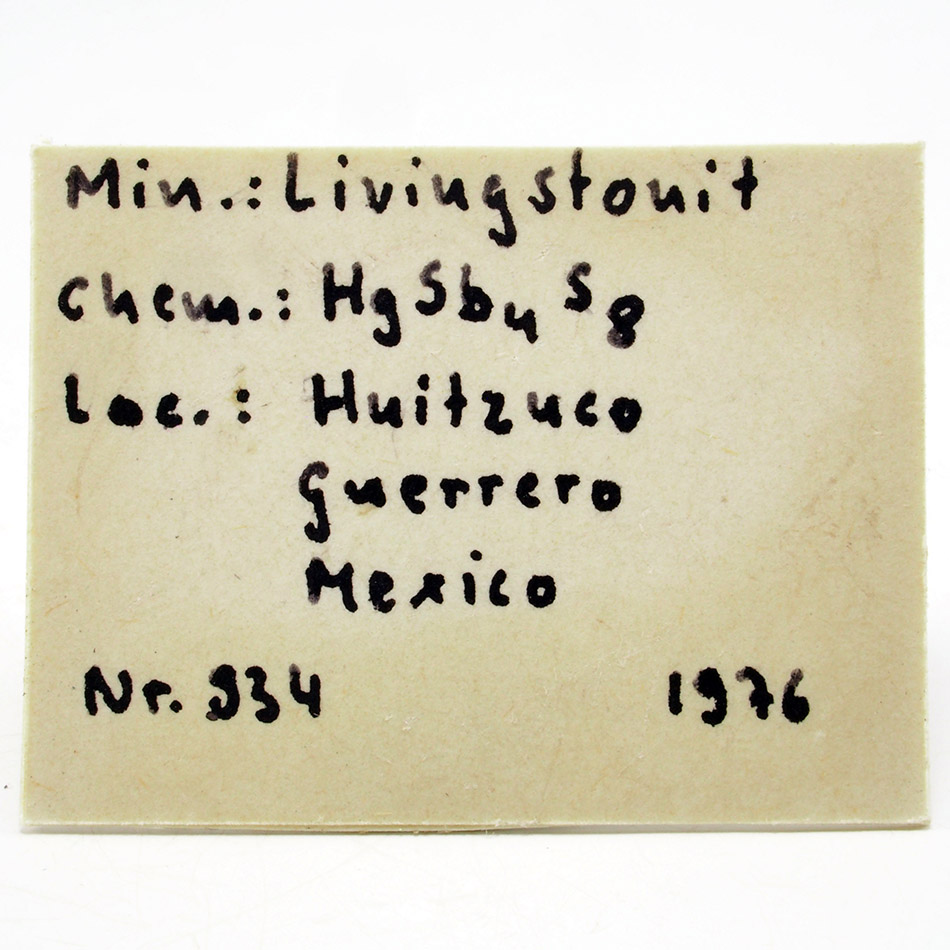 Min.: Livingstonit
Chem.: HgSb₄S₈
Loc.: Huitzuco
Guerrero
Mexico
Nr. 934 1976